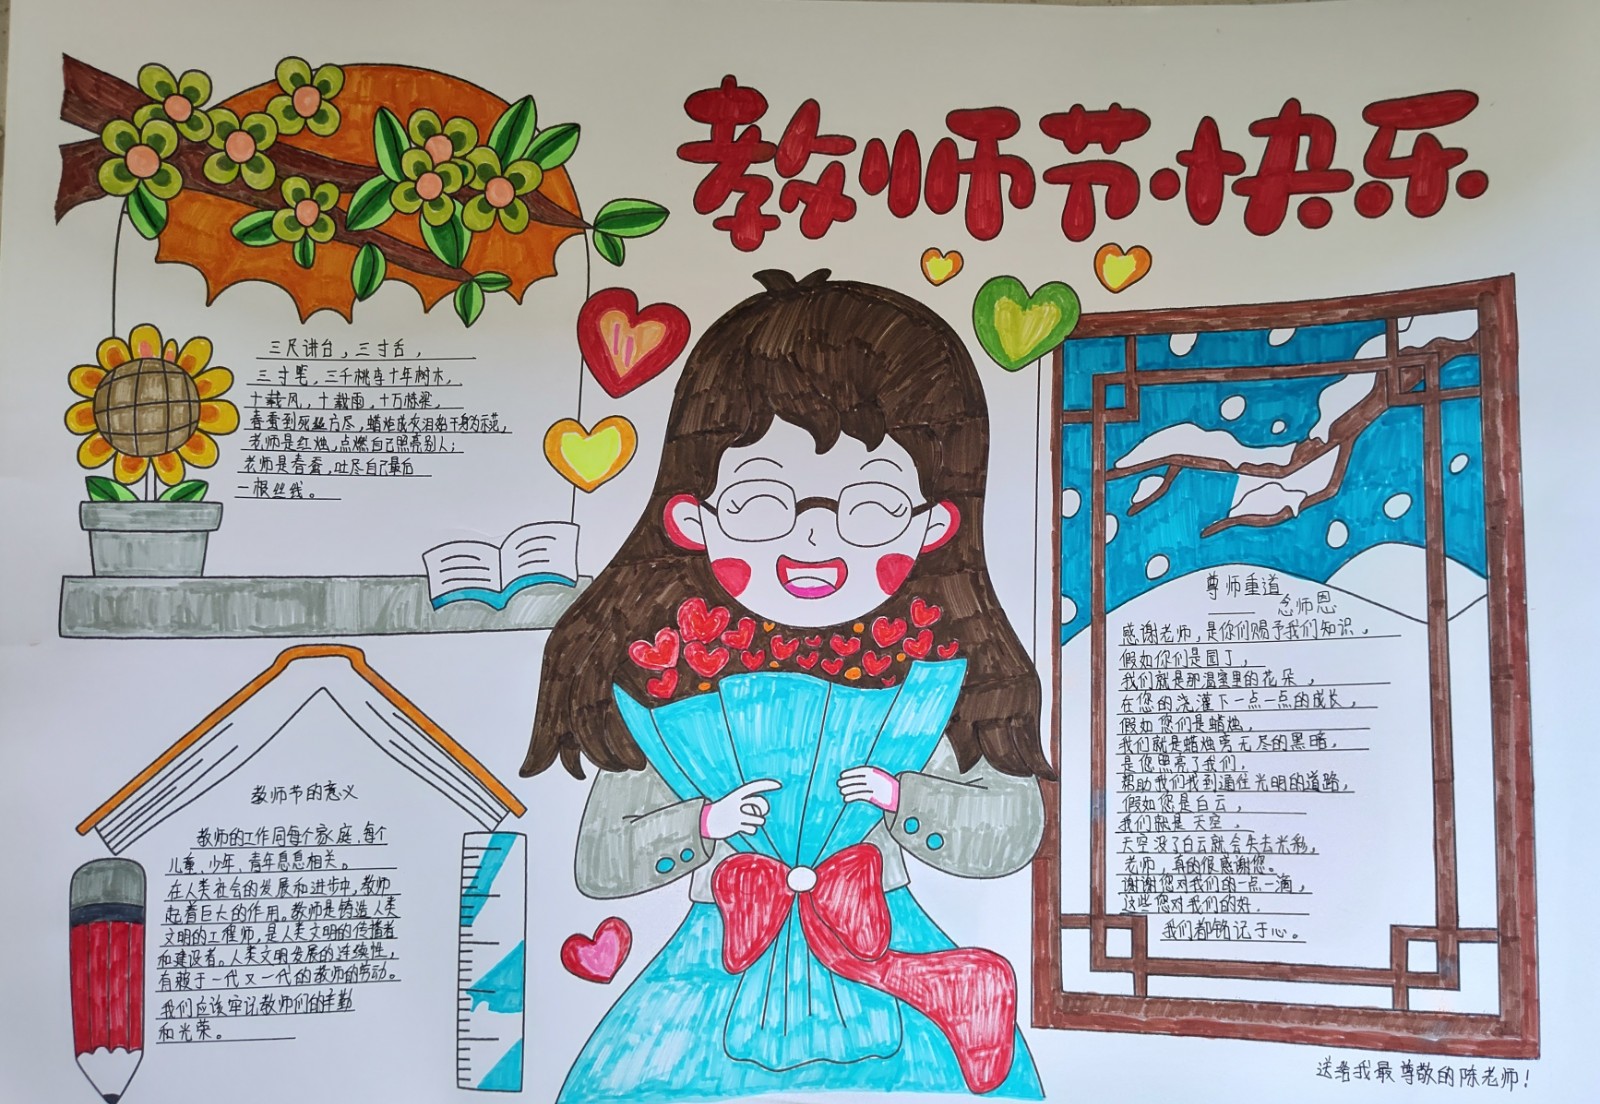 教师节快乐
三尺讲台，三寸舌，
三寸笔，三千桃李十年树木，
十载风，十载雨，十万栋梁，
春蚕到死丝方尽，蜡炬成灰泪始干身为示范，
老师是红烛，点燃自己照亮别人；
老师是春蚕，吐尽自己最后
一根丝线。
教师节的意义
教师的工作同每个家庭、每个
儿童、少年、青年息息相关。
在人类社会的发展和进步中，教师
起着巨大的作用。教师是铸造人类
文明的工程师，是人类文明的传播者
和建设者。人类文明发展的连续性，
有赖于一代又一代的教师的劳动。
我们应该牢记教师们的辛勤
和光荣。
尊师重道
——念师恩
感谢老师，是你们赐予我们知识，
假如你们是园丁，
我们就是那温室里的花朵，
在您的浇灌下一点一点的成长，
假如您们是蜡烛，
我们就是蜡烛旁无尽的黑暗，
是您照亮了我们，
帮助我们找到通往光明的道路，
假如您是白云，
我们就是天空，
天空没了白云就会失去光彩，
老师，真的很感谢您。
谢谢您对我们的一点一滴，
这些您对我们的好.
我们都铭记于心。
送给我最尊敬的陈老师！